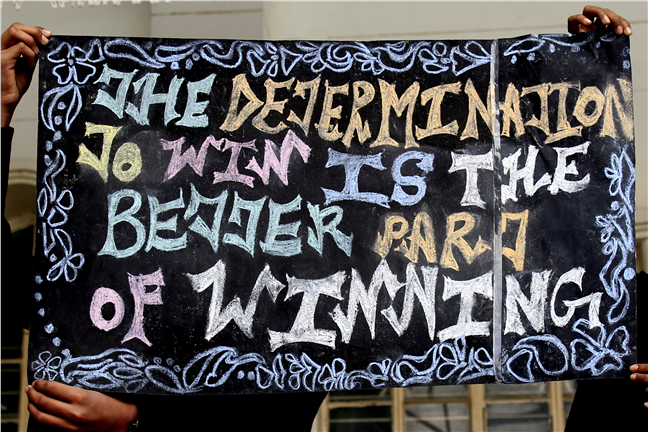 THE DETERMINATION
TO WIN IS THE
BETTER PART
OF WINNING